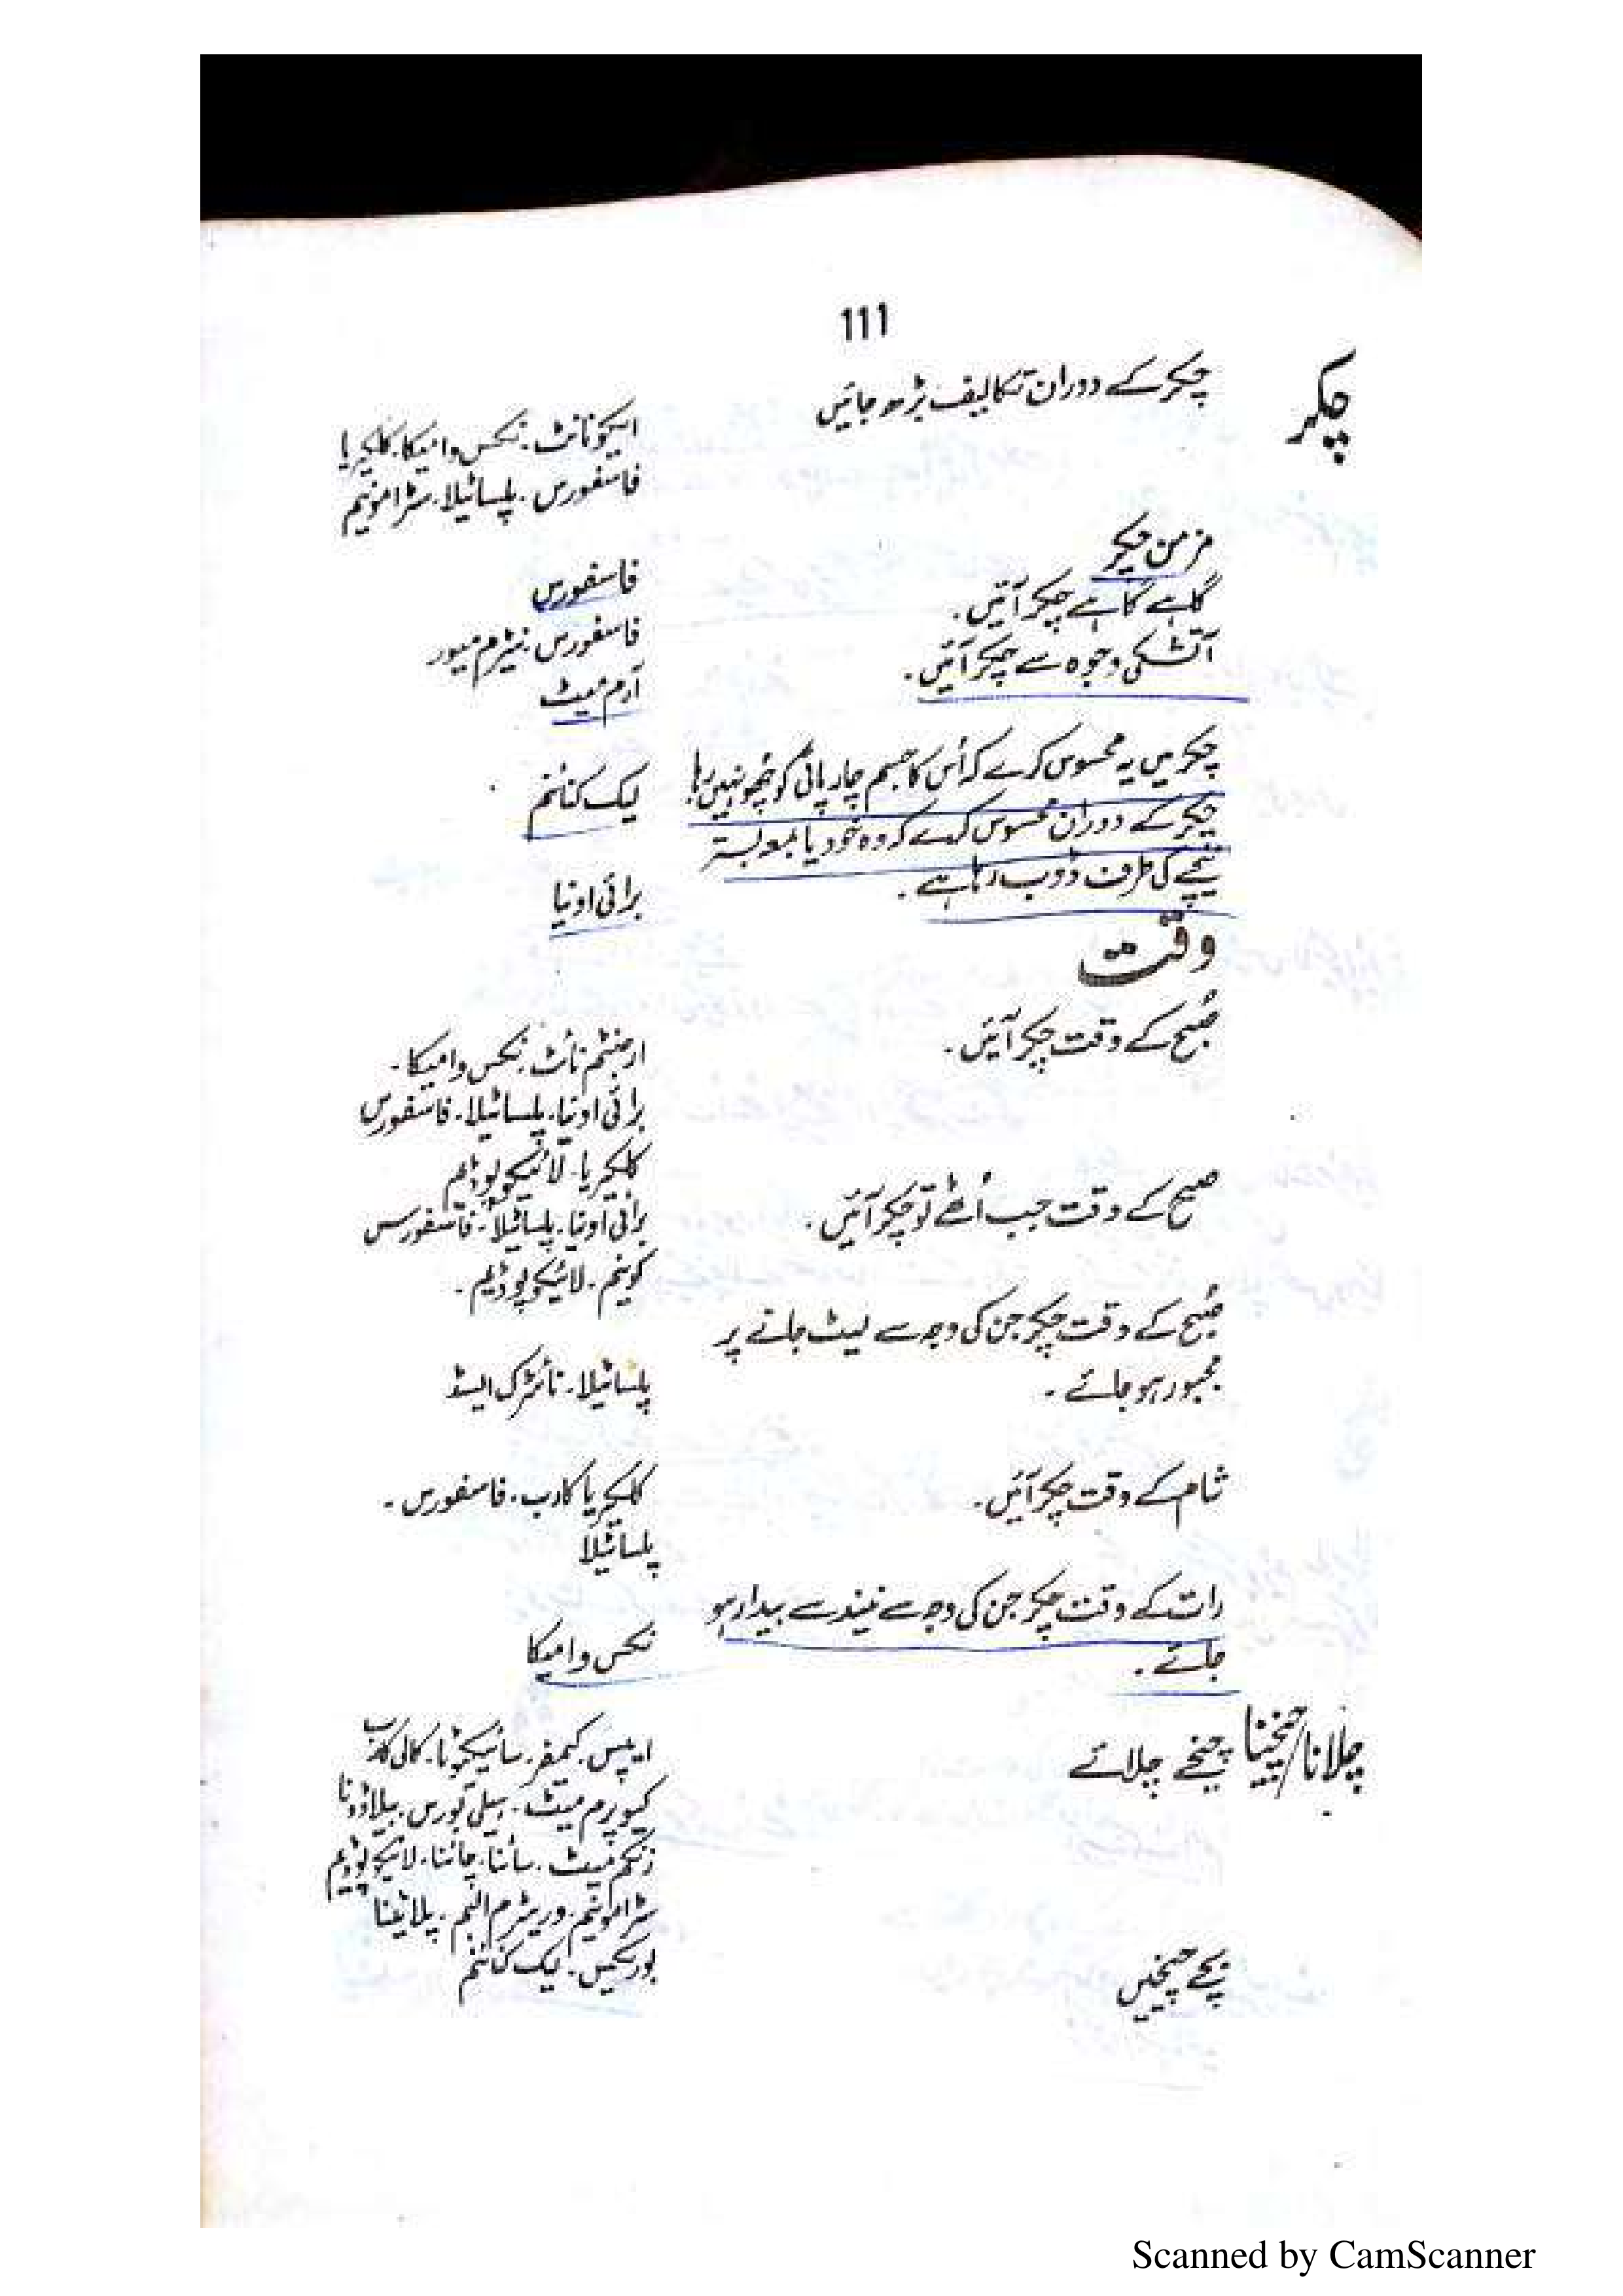 111
چکر
چکر کے دوران تکالیف بڑھ جائیں
ایکونائٹ۔ نکس وامیکا۔ کلکیریا
فاسفورس۔ پلساٹیلا۔ سٹرامونیم
مزمن چکر
فاسفورس
گاہے گاہے چکر آئیں۔
فاسفورس۔ نیٹرم میور
آتشکی وجوہ سے چکر آئیں۔
آرم میٹ
چکر میں یہ محسوس کرے کہ اُس کا جسم چارپائی کو چُھو نہیں رہا
لیک کنائنم
چکر کے دوران محسوس کرے کہ وہ خود یا بمعہ بستر
نیچے کی طرف ڈوب رہا ہے۔
برائی اونیا
وقت
صُبح کے وقت چکر آئیں۔
ارجنٹم نائٹ۔ نکس وامیکا۔
برائی اونیا۔ پلساٹیلا۔ فاسفورس
کلکیریا۔ لائیکوپوڈیم
صبح کے وقت جب اُٹھے تو چکر آئیں۔
برائی اونیا۔ پلساٹیلا۔ فاسفورس
کونیم۔ لائیکوپوڈیم۔
صُبح کے وقت چکر جن کی وجہ سے لیٹ جانے پر
مجبور ہو جائے۔
پلساٹیلا۔ نائٹرک ایسڈ
شام کے وقت چکر آئیں۔
کلکیریا کارب۔ فاسفورس۔
پلساٹیلا
رات کے وقت چکر جن کی وجہ سے نیند سے بیدار ہو
جائے۔
نکس وامیکا
چلانا/چیخنا
چیخے چلائے
ایپس۔ کیمفر۔ سائیکوٹا۔ کالی کارب
کیوپرم میٹ۔ ہیلی بورس۔ بیلاڈونا
زنکم میٹ۔ سائنا۔ چائنا۔ لائیکوپوڈیم
سٹرامونیم۔ وریٹرم البم۔ پلاٹینا
بچے چیخیں
بوریکس۔ لیک کنائنم
Scanned by CamScanner